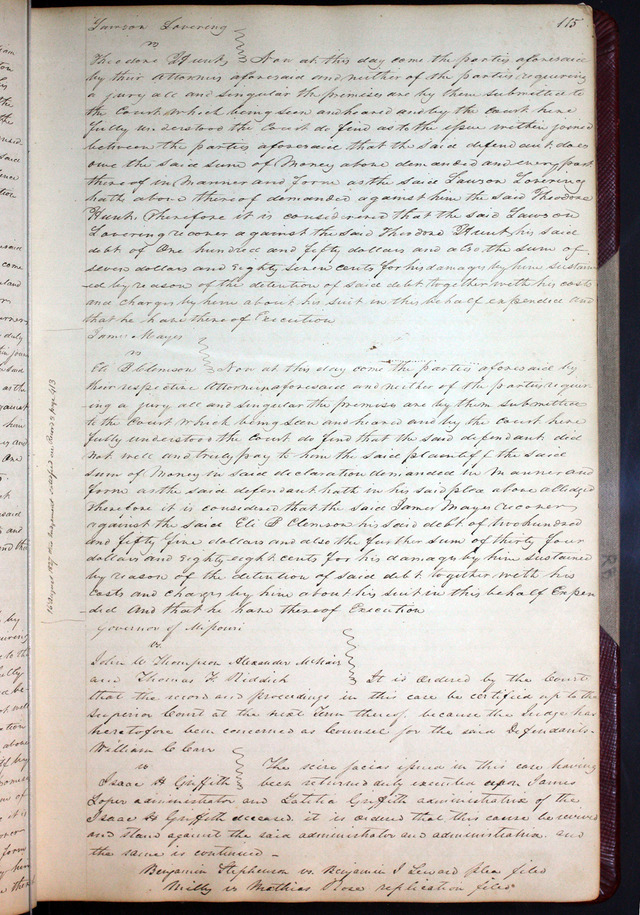 115
Lawson Lovering
vs
Theodore Hunt Now at this day come the parties aforesaid
by their Attornies aforesaid and neither of the parties requiring
a jury all and singular the premises are by them submitted to
the Court which being seen and heard and by the court here
fully understood the Court do find as to the issue within joined
between the parties aforesaid that the said defendant does
owe the said sum of Money above demanded and every part
thereof in Manner and form as the said Lawson Lovering
hath above thereof demanded against him the said Theodore
Hunt. Therefore it is considered that the said Lawson
Lovering recover against the said Theodore Hunt his said
debt of One hundred and fifty dollars and also the sum of
seven dollars and Eighty seven cents for his damages by him sustain
ed by reason of the detention of said debt together with his costs
and charges by him about his suit in this behalf expended and
that he have thereof Execution
James Mayes
vs
Eli B Clemson Now at this day come the parties aforesaid by
their respective Attornies aforesaid and neither of the parties requir
ing a jury all and singular the premises are by them submitted
to the Court which being seen and heard and by the court here
fully understood the Court do find that the said defendant did
not well and truly pay to him the said plaintiff the said
sum of Money in said declaration demanded in manner and
form as the said defendant hath in his said plea above alledged
therefore it is considered that the said James Mayes recover
against the said Eli B Clemson his said debt of two hundred
and fifty five dollars and also the further sum of thirty four
dollars and Eighty eight cents for his damages by him sustained
by reason of the detention of said debt together with his
costs and charges by him about his suit in this behalf Expen
ded and that he have thereof Execution
Governor of Missouri
vs.
John W Thompson Alexander McNair
and Thomas F. Riddick It is ordered by the Court
that the record and proceedings in this case be certified up to the
Superior Court at the next Term thereof, because the Judge has
heretofore been concerned as Counsel for the said Defendants.
William C Carr
vs
Isaac H Griffith The scire facias issued in this case having
been returned duly executed upon James
Loper administrator and Latitia Griffith administratrix of the
Isaac H Griffith deceased it is ordered that this cause be revived
and stand against the said administrator and administratrix and
the same is continued -
Benjamin Stephenson vs. Benjamin J Seward plea filed
Milly vs Mathias Rose replication filed